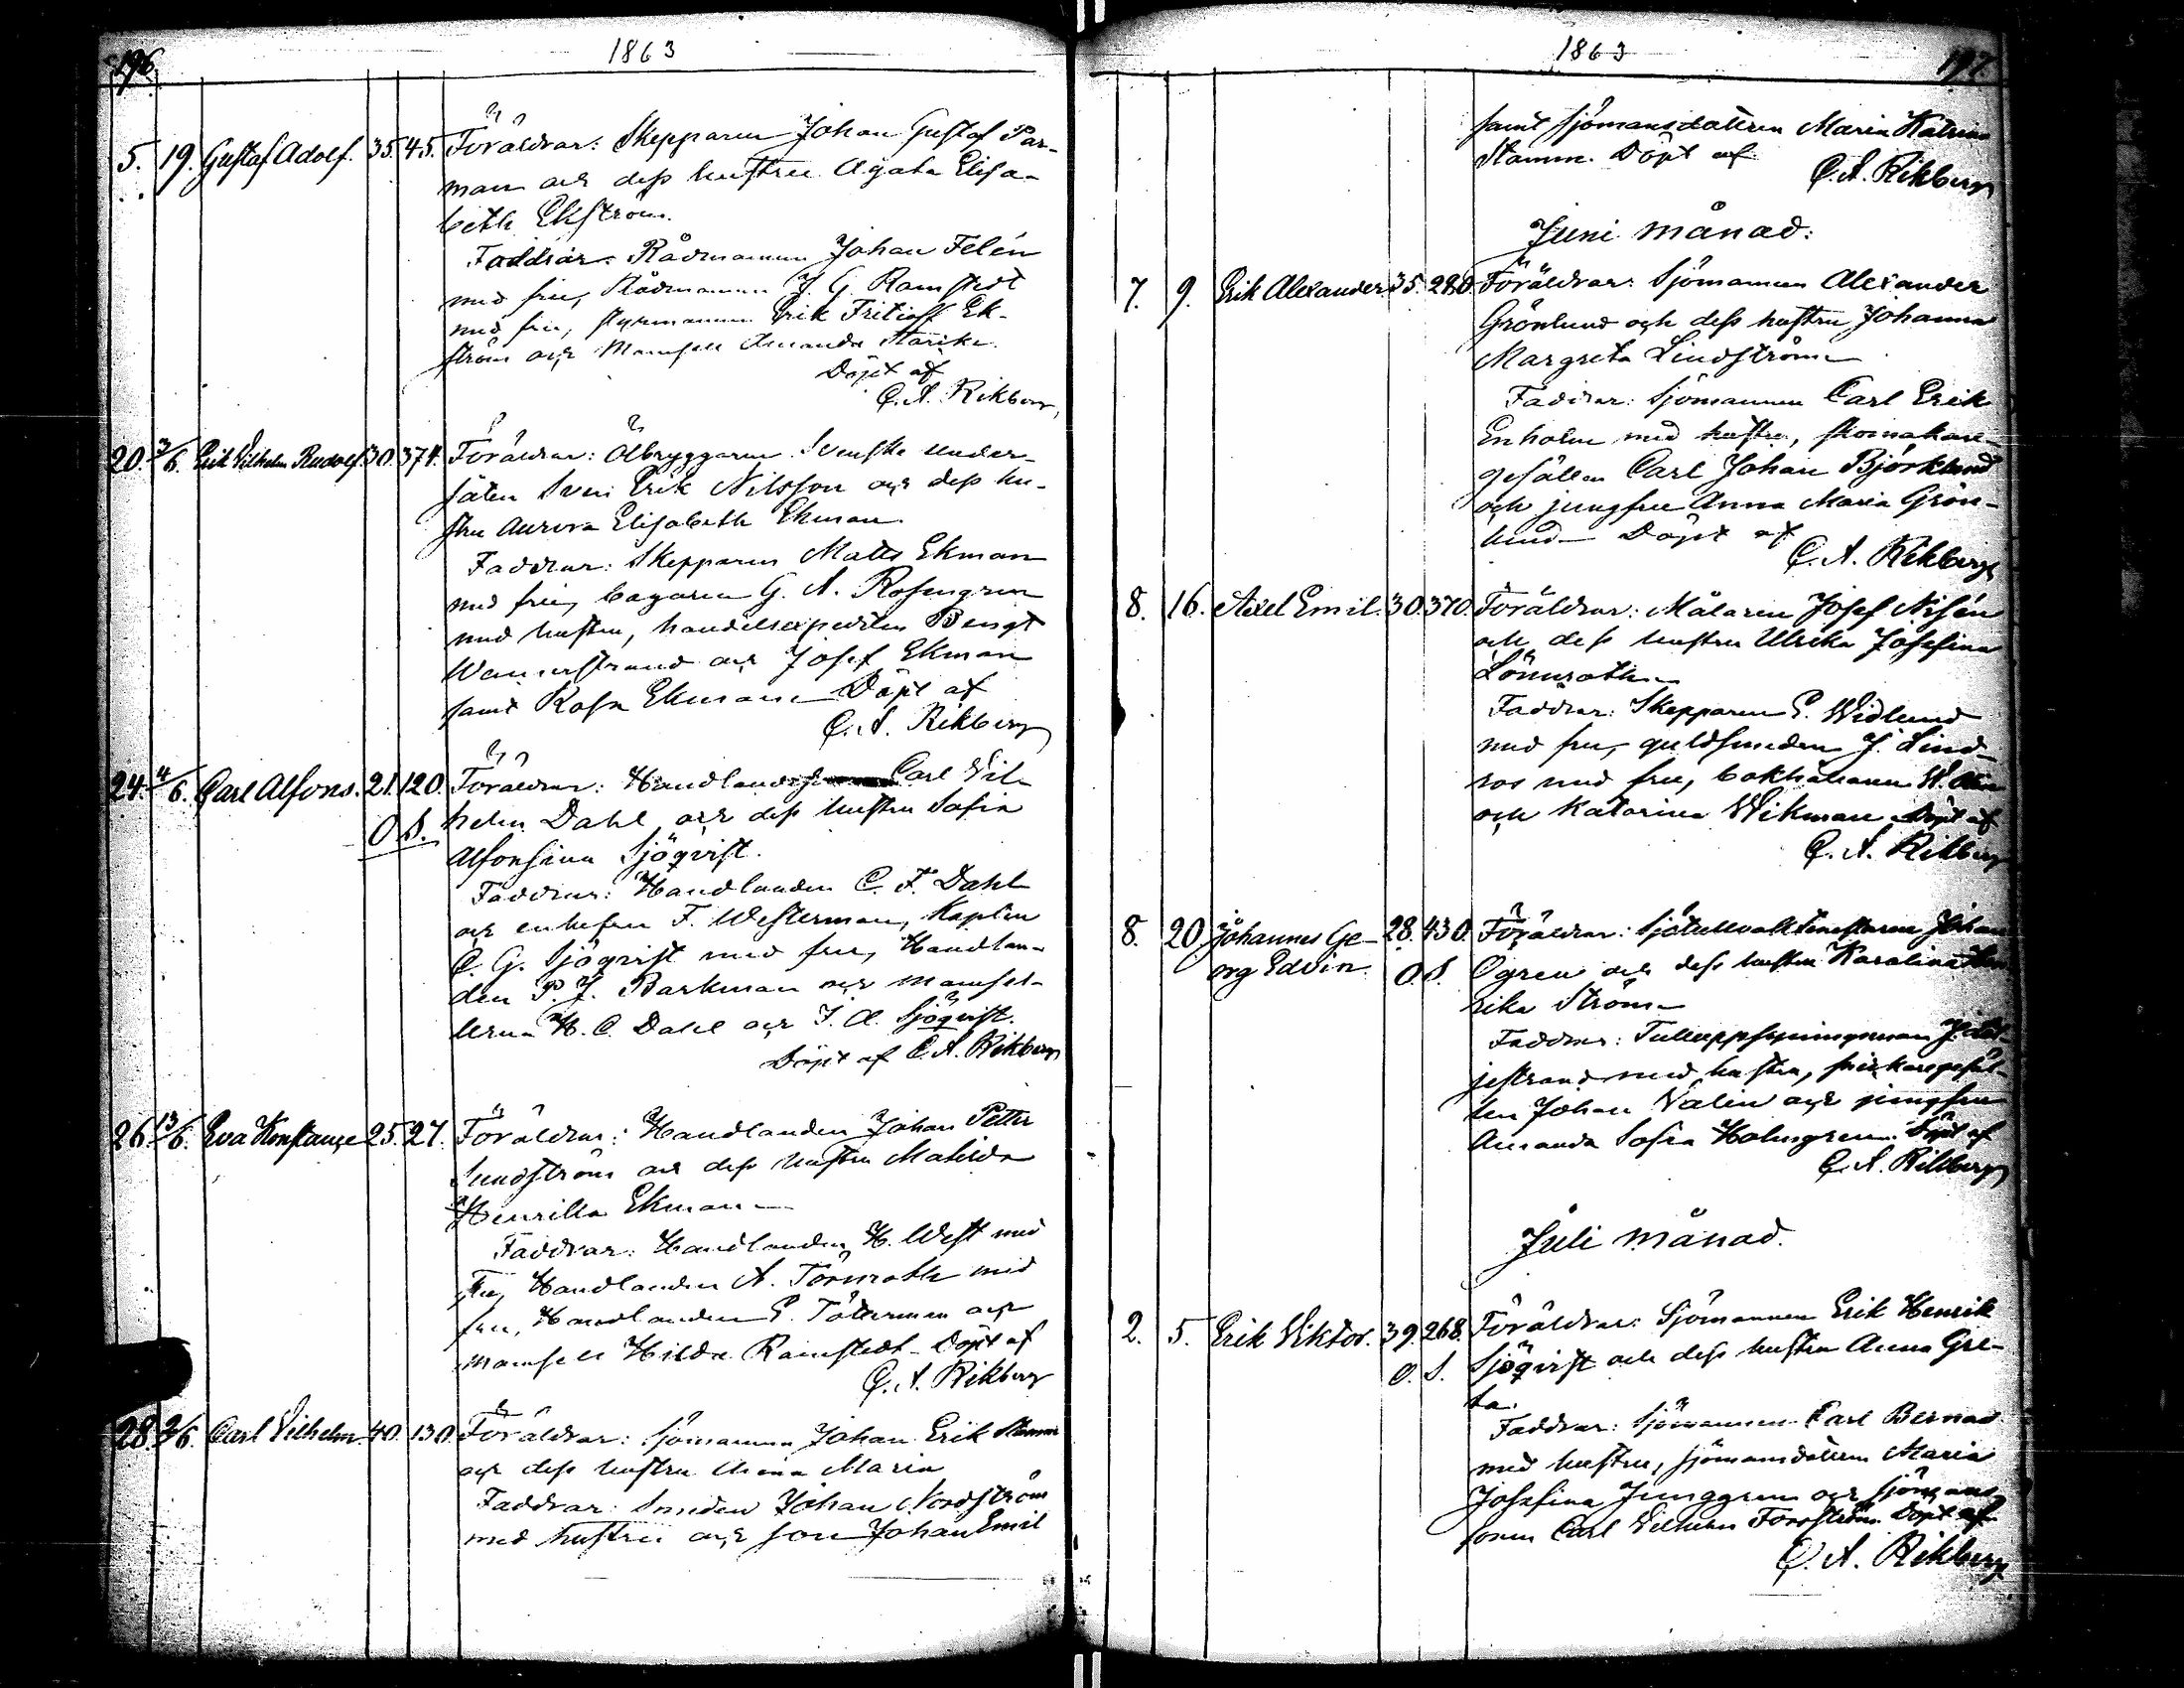 196
1863
5. 19. Gustaf Adolf. 35. 45. Föräldrar: Skepparen Johan Gustaf Par-
man och dess hustru Agata Elisa-
beth Ekström.
Faddrar: Rådmannen Johan Felén
med fru, Rådmannen J. G. Ramstedt
med fru, styrmannen Erik Fritioff Ek-
ström och Mamsell Amanda
Döpt af
C. A. Rikberg
20. 3/6. Erik Vilhelm Rudolf. 30. 374. Föräldrar: Ölbryggaren Svenske under-
såten Sven Erik Nilsson och dess hu-
stru Aurora Elisabeth Ekman.
Faddrar: Skepparen Matts Ekman
med fru, bagaren G. A. Rosengren
med hustru, handelsexpediten Bengt
Wennerstrand och Josef Ekman
samt Rosa Ekman. Döpt af
C. A. Rikberg
24. 4/6. Carl Alfons. 21. 120. Föräldrar: Handlanden Carl Vil-
O. S. helm Dahl och dess hustru Sofia
Alfonsina Sjöqvist.
Faddrar: Handlanden C. F. Dahl
och enkefru F. Westerman, Kapten
C. G. Sjöqvist med fru, Handlan-
den P. J. Barkman och mamsel-
lerna H. C. Dahl och J. A. Sjöqvist.
Döpt af C. A. Rikberg
26. 13/6. Eva Konstanze 25. 27. Föräldrar: Handlanden Johan Petter
Sundström och dess hustru Mathilda
Henrika Ekman
Faddrar: Handlanden H. West med
Fru, Handlanden A. Törnroth med
fru, Handlanden E. Töttermen och
mamsell Hilda Ramstedt. Döpt af
C. A. Rikberg
28. 2/6. Carl Vilhelm. 40. 130. Föräldrar: Sjömannen Johan Erik Stamm
och dess hustru Maria
Faddrar: Smeden Johan Nordström
med hustru och son Johan Emil
1863
197.
samt sjömansdottren Maria Katrina
Stamm. Döpt af
C. A. Rikberg
Juni månad:
7. 9. Erik Alexander. 35. 280. Föräldrar: Sjömannen Alexander
Grönlund och dess hustru Johanna
Margreta Lindström
Faddrar: Sjömannen Carl Erik
Enholm med hustru, skomakare-
gesällen Carl Johan Björklund
och jungfru Anna Maria Grön-
lund Döpt af
C. A. Rikberg
8. 16. Axel Emil. 30. 370. Föräldrar: Målaren Josef Nisén
och dess hustru Ulrika Josefina
Lönnroth
Faddrar: Skepparen E. Widlund
med fru, guldsmeden J. Lind-
ros med fru, bokhållaren W.
och Katarina Wikman Döpt af
C. A. Rikberg
8. 20. Johannes Ge- 28. 430. Föräldrar: Sjötullvaktmästaren Johan
org Edvin. O. S. Ögren och dess hustru Karolina Hen-
rika Ström
Faddrar: Tulluppsyningsman
jestrand med hustru, gesäl-
len Johan Valin och jungfru
Amanda Sofia Holmgren. Döpt af
C. A. Rikberg
Juli månad.
2. 5. Erik Viktor. 39. 268. Föräldrar: Sjömannen Erik Henrik
O. S. Sjöqvist och dess hustru Anna Gre-
ta.
Faddrar: Sjömannen Carl Bernas
med hustru, sjömansdottern Maria
Josefina Junggren och sjömans-
sonen Carl Vilhelm Forsström. Döpt af
C. A. Rikberg